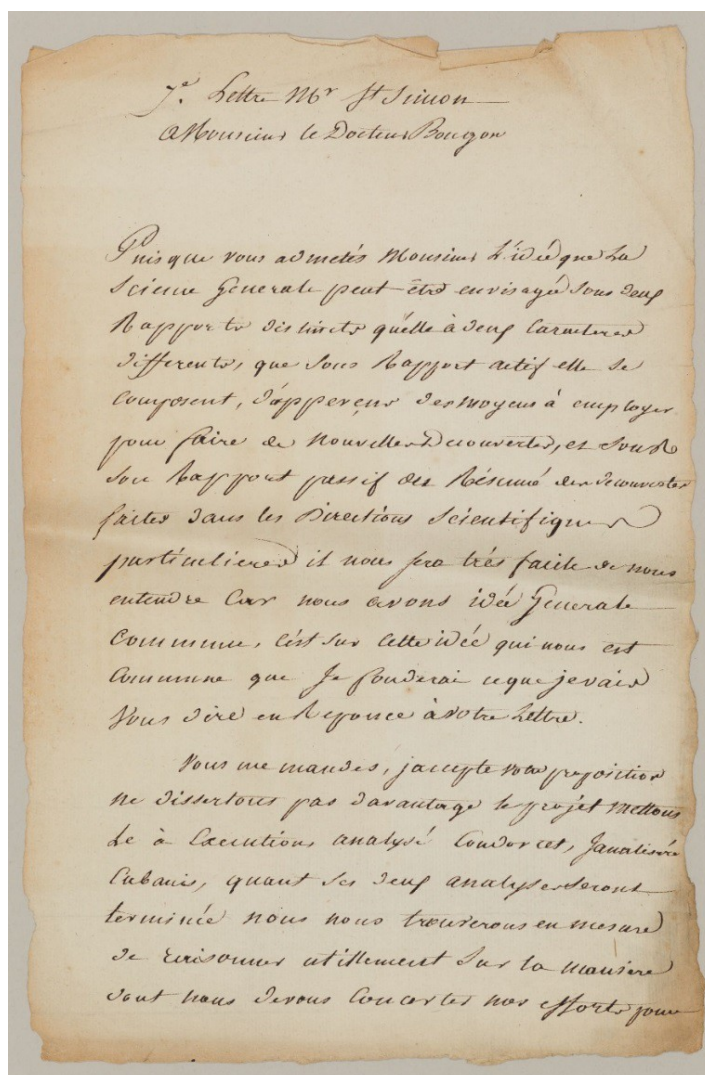 7e. Lettre Mr St Simon
A Monsieur le Docteur Bougon
Puisque vous admetés Monsieur L'idé que La
Science Generale peut être envisagé sous deux
Rapports distincts qu'elle à deux Caracteres
differents, que sous Rapport actif elle se
Composent, d'apperçus des moyens à employer
pour faire de Nouvelles Decouvertes, et sous
son Rapport passif du Résumé des decouvertes
faites dans les Directions Scientifiques
particulieres il nous sera très facile de nous
entendre Car nous avons idée Generale
Commune, C'est sur Cette idée qui nous est
Commune que Je fonderai ce que je vais
Vous dire en Reponce à votre Lettre.
Vous me mandes, j'accepte votre proposition
ne dissertons pas davantage le projèt mettons
Le à Executions analysé Condorcet, J'analiserai
Cabanis, quant ses deux analyses seront
terminée nous nous trouverons en mesure
de raisonner utillement sur la maniere
dont nous devons Concerter nos efforts pour